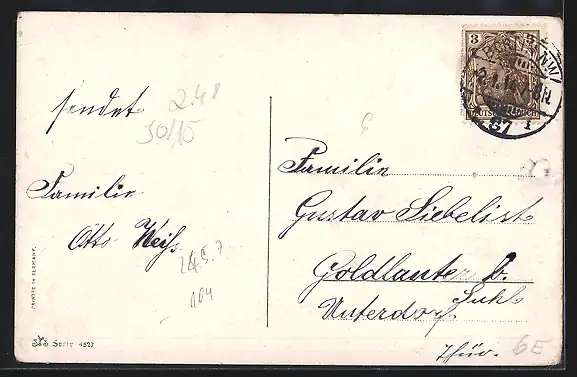 sendet
2.48
30/15
Familie
Otto Weiß
24.5.7
104
PRINTED IN GERMANY.
Serie 4527
3 3
BERLIN NW
Familie
Gustav Liebelist
Goldlauter b.
Suhl
Unterdorf
Thür.
6E